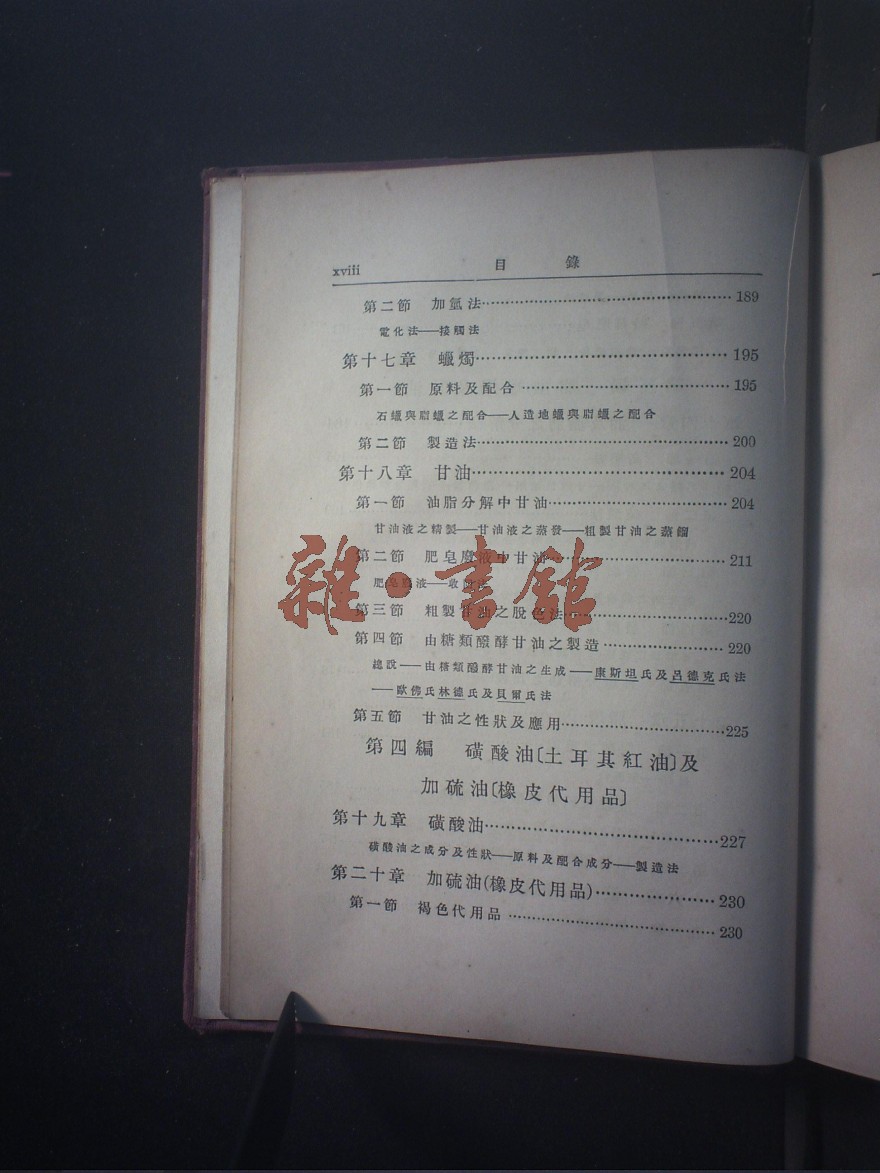 xviii 目錄
第二節 加氫法……189
電化法——接觸法
第十七章 蠟燭……195
第一節 原料及配合……195
石蠟與脂蠟之配合——人造地蠟與脂蠟之配合
第二節 製造法……200
第十八章 甘油……204
第一節 油脂分解中甘油……204
甘油液之精製——甘油液之蒸發——粗製甘油之蒸餾
第二節 肥皂廢液中甘油……211
肥皂廢液——收回法
第三節 粗製甘油之脫色法……220
第四節 由糖類醱酵甘油之製造……220
總說——由糖類醱酵甘油之生成——康斯坦氏及呂德克氏法
——歐佛氏林德氏及貝爾氏法
第五節 甘油之性狀及應用……225
第四編 磺酸油〔土耳其紅油〕及
加硫油〔橡皮代用品〕
第十九章 磺酸油……227
磺酸油之成分及性狀——原料及配合成分——製造法
第二十章 加硫油(橡皮代用品)……230
第一節 褐色代用品……230
雜·書館